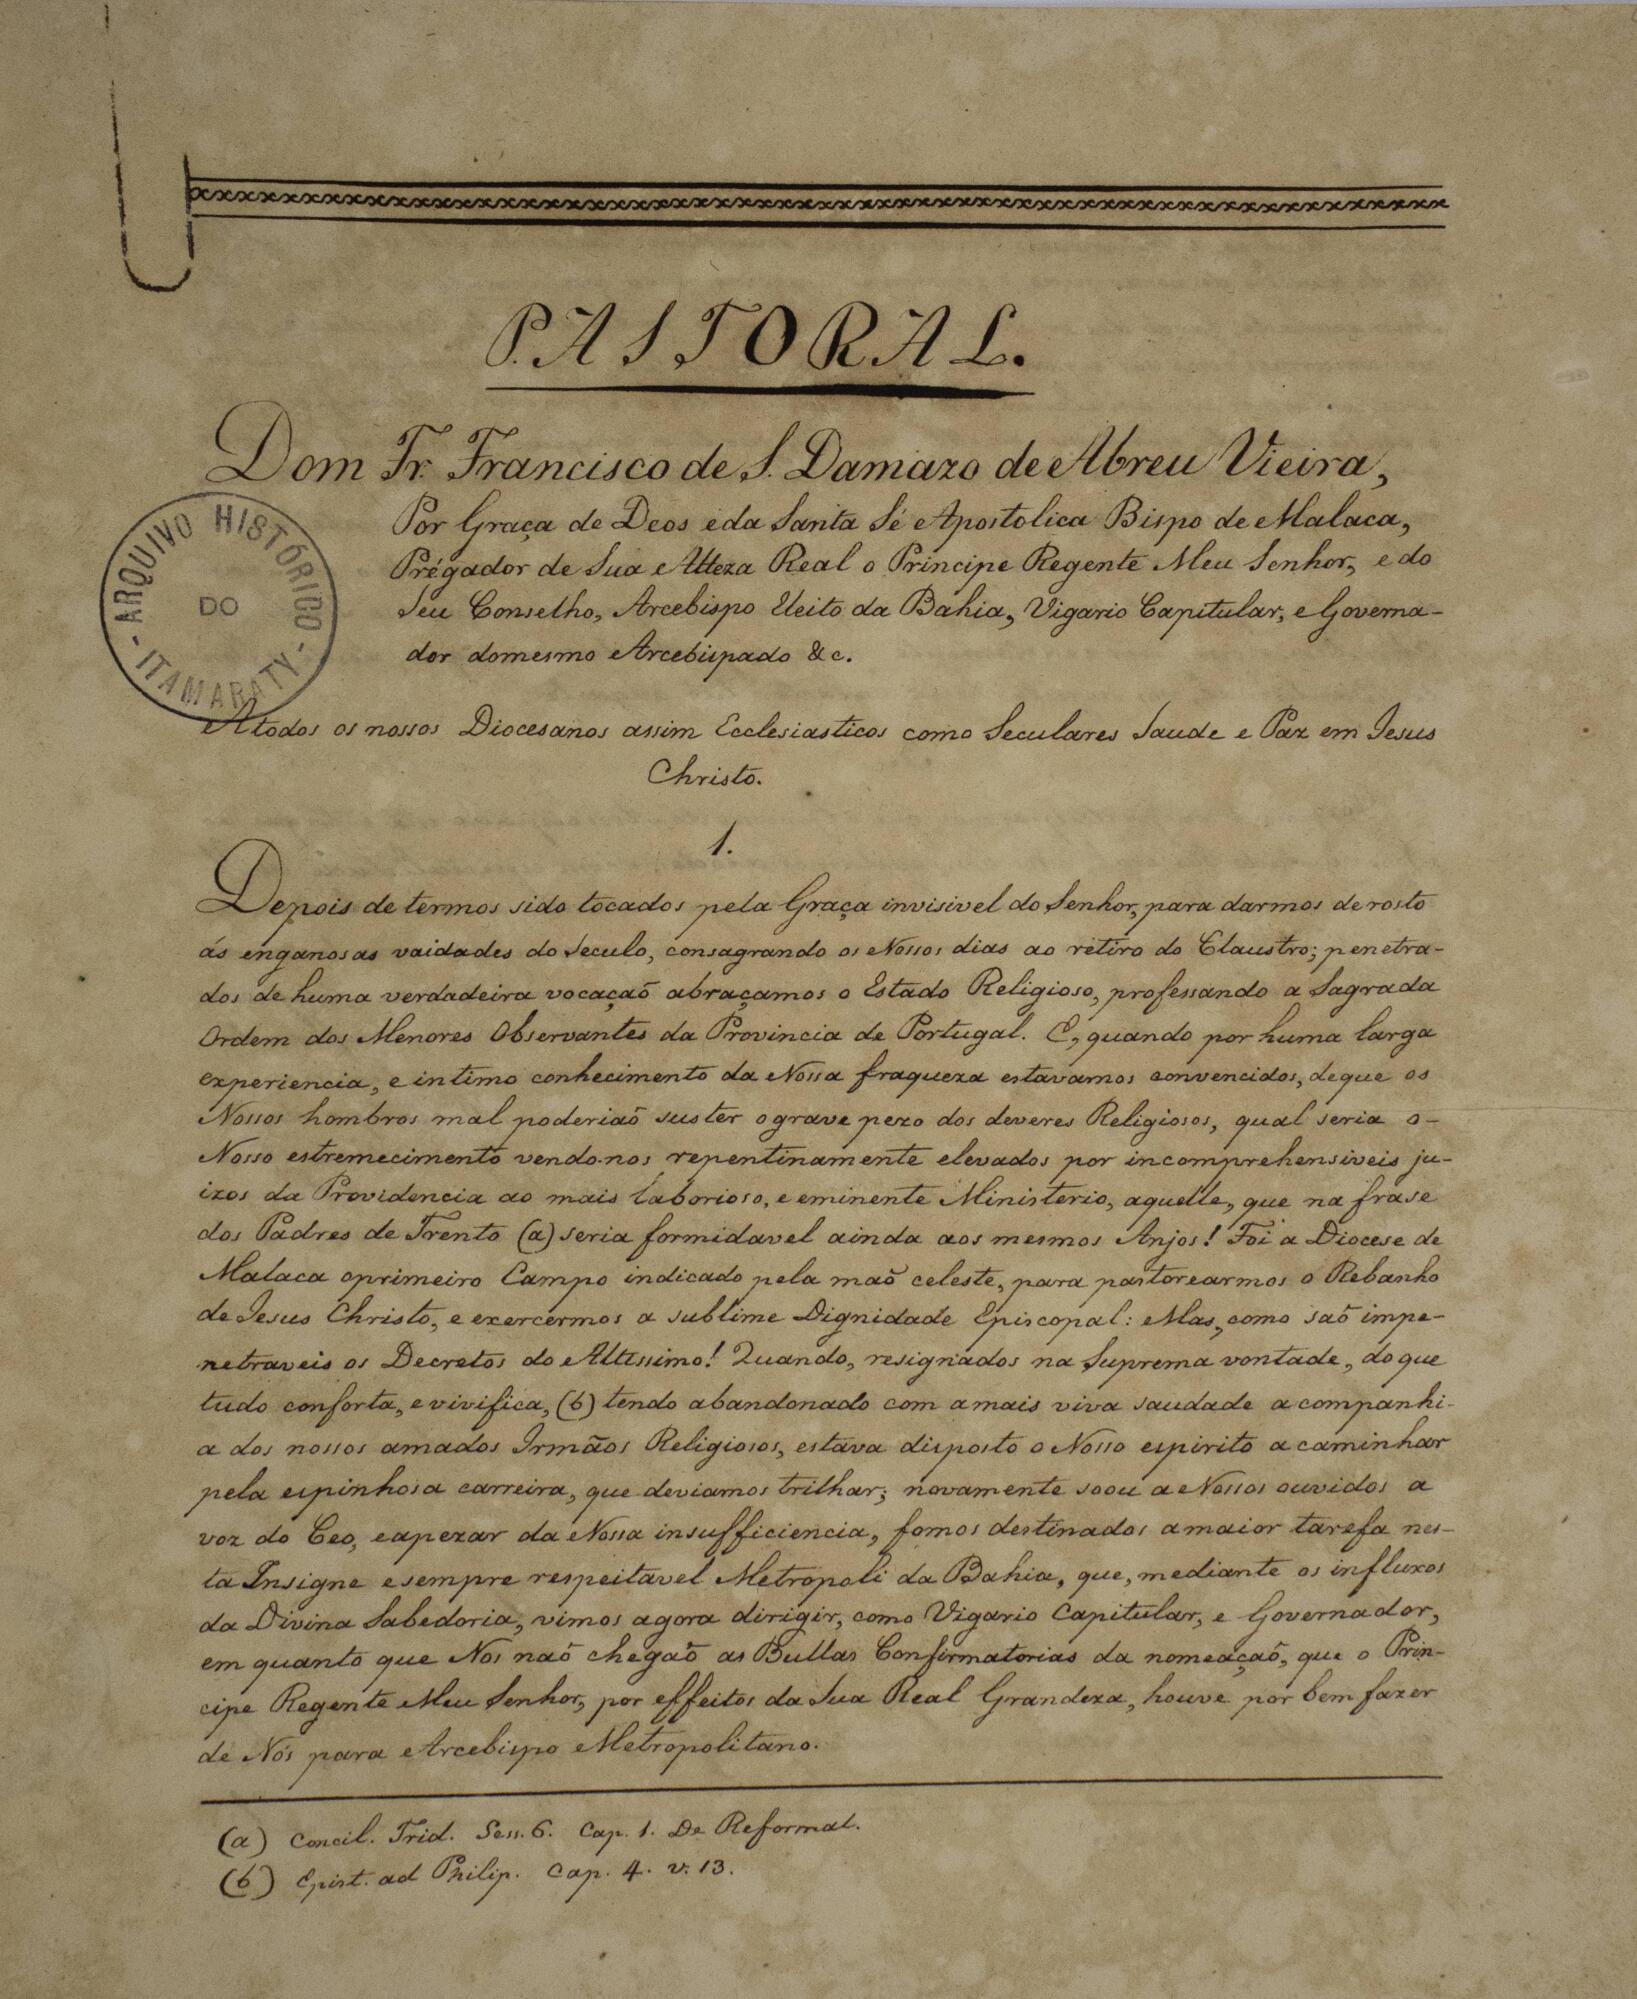 PASTORAL.
Dom Fr. Francisco de S. Damazo de Abreu Vieira,
Por Graça de Deos e da Santa Sé Apostolica Bispo de Malaca,
Prégador de Sua Alteza Real o Principe Regente Meu Senhor, e do
Seu Conselho, Arcebispo Eleito da Bahia, Vigario Capitular, e Governa-
dor do mesmo Arcebispado &c.
ARQUIVO HISTÓRICO
DO
- ITAMARATY -
A todos os nossos Diocesanos assim Ecclesiasticos como Seculares Saude e Paz em Jesus
Christo.
1.
Depois de termos sido tocados pela Graça invisivel do Senhor, para darmos de rosto
ás enganosas vaidades do Seculo, consagrando os Nossos dias ao retiro do Claustro; penetra-
dos de huma verdadeira vocaçaõ abraçamos o Estado Religioso, professando a Sagrada
Ordem dos Menores Observantes da Provincia de Portugal. E, quando por huma larga
experiencia, e intimo conhecimento da Nossa fraqueza estavamos convencidos, de que os
Nossos hombros mal poderiaõ suster o grave pezo dos deveres Religiosos, qual seria o-
Nosso estremecimento vendo-nos repentinamente elevados por incomprehensiveis ju-
izos da Providencia ao mais laborioso, e eminente Ministerio, aquelle, que na frase
dos Padres de Trento (a) seria formidavel ainda aos mesmos Anjos! Foi a Diocese de
Malaca o primeiro Campo indicado pela maõ celeste, para pastorearmos o Rebanho
de Jesus Christo, e exercermos a sublime Dignidade Episcopal: Mas, como saõ impe-
netraveis os Decretos do Altissimo! Quando, resignados na Suprema vontade, do que
tudo conforta, e vivifica, (b) tendo abandonado com a mais viva saudade a companhi-
a dos nossos amados Irmãos Religiosos, estava disposto o Nosso espirito a caminhar
pela espinhosa carreira, que deviamos trilhar; novamente soou a Nossos ouvidos a
voz do Ceo, e apezar da Nossa insufficiencia, fomos destinados a maior tarefa nes-
ta Insigne e sempre respeitavel Metropoli da Bahia, que, mediante os influxos
da Divina Sabedoria, vimos agora dirigir, como Vigario Capitular, e Governador,
em quanto que Nos naõ chegaõ as Bullas Confirmatorias da nomeaçaõ, que o Prin-
cipe Regente Meu Senhor, por effeitos da Sua Real Grandeza, houve por bem fazer
de Nós para Arcebispo Metropolitano.
(a) Concil. Trid. Sess. 6. Cap. 1. De Reformat.
(b) Epist. ad Philip. Cap. 4. v. 13.